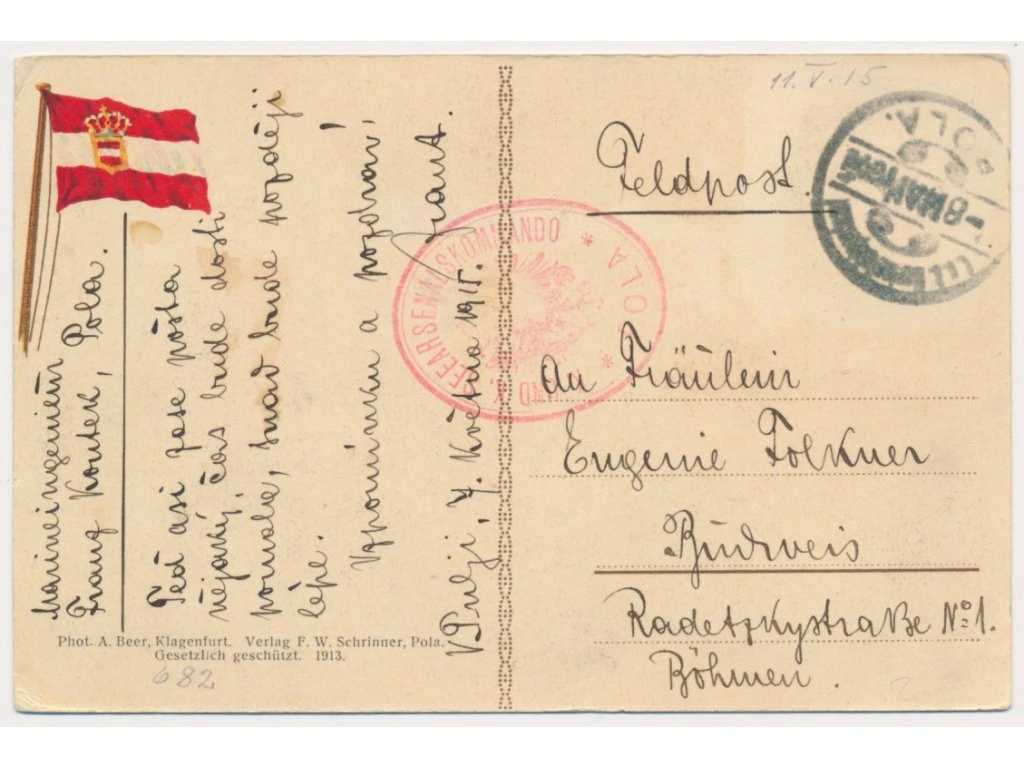 Marineingenieur
Franz Koutek, Pola.
Teď asi zase pošta
nějaký čas bude dosti
pomalá, snad bude později
lépe.
Vzpomínku a pozdraví
Frant.
V Pulji, 7. Května 1915.
Phot. A. Beer, Klagenfurt. Verlag F. W. Schrinner, Pola.
Gesetzlich geschützt. 1913.
682
11. V. 15
Feldpost.
POLA.
-8 MAI
SEEARSENALSKOMMANDO * POLA *
An Fräulein
Eugenie Folkner
Budweis
Radetzkystraße No 1.
Böhmen.